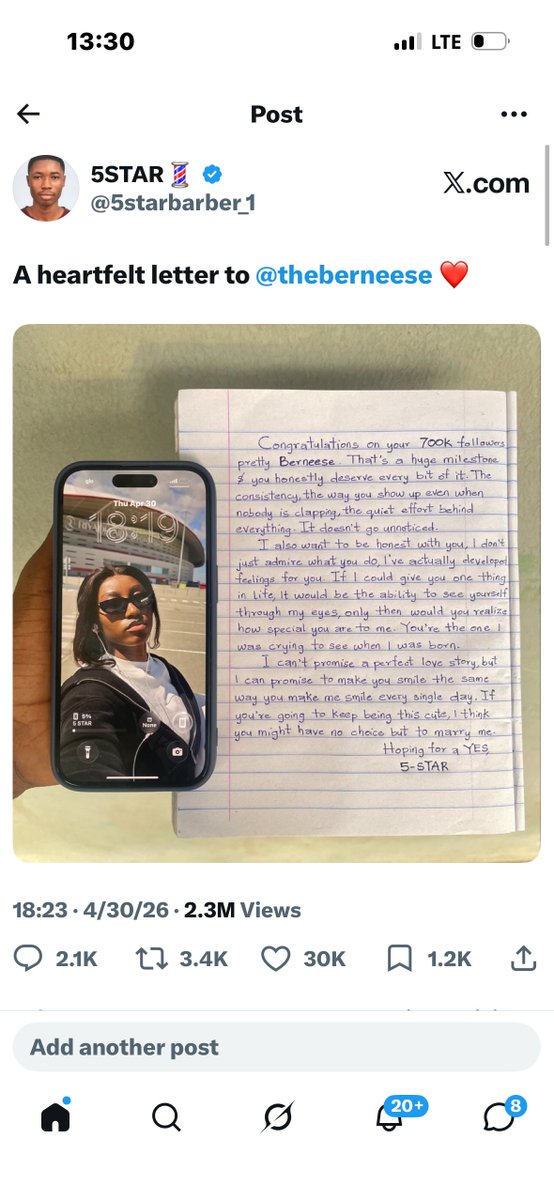 13:30
LTE
Post
5STAR💈
@5starbarber_1
X.com
A heartfelt letter to @theberneese ❤️
Congratulations on your 700K followers
pretty Berneese. That's a huge milestone
& you honestly deserve every bit of it. The
consistency, the way you show up even when
nobody is clapping, the quiet effort behind
everything. It doesn't go unnoticed.
I also want to be honest with you, I don't
just admire what you do, I've actually developed
feelings for you. If I could give you one thing
in life, It would be the ability to see yourself
through my eyes, only then would you realize
how special you are to me. You're the one I
was crying to see when I was born.
I can't promise a perfect love story, but
I can promise to make you smile the same
way you make me smile every single day. If
you're going to keep being this cute, I think
you might have no choice but to marry me.
Hoping for a YES,
5-STAR
glo
Thu Apr 30
18:19
5%
5 STAR
None
18:23 · 4/30/26 · 2.3M Views
2.1K
3.4K
30K
1.2K
Add another post
20+
8